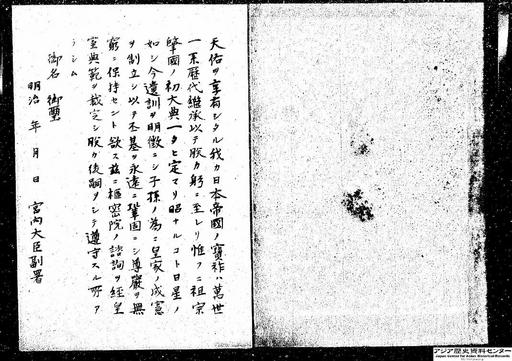 天佑ヲ享有シタル我カ日本帝國ノ寶祚ハ萬世
一系歴代繼承以テ朕カ躬ニ至レリ惟フニ祖宗
肇國ノ初大典一タヒ定マリ昭ナルコト日星ノ
如シ今遺訓ヲ明徴ニシ子孫ノ為ニ皇家ノ成憲
ヲ制立シ以テ丕基ヲ永遠ニ鞏固ニシ尊嚴ヲ無
窮ニ保持セント欲ス茲ニ樞密院ノ諮詢ヲ經皇
室典範ヲ裁定シ朕カ後嗣ヲシテ遵守スル所ア
ラシム
御名 御璽
明治 年 月 日 宮内大臣副署
アジア歴史資料センター
Japan Center for Asian Historical Records